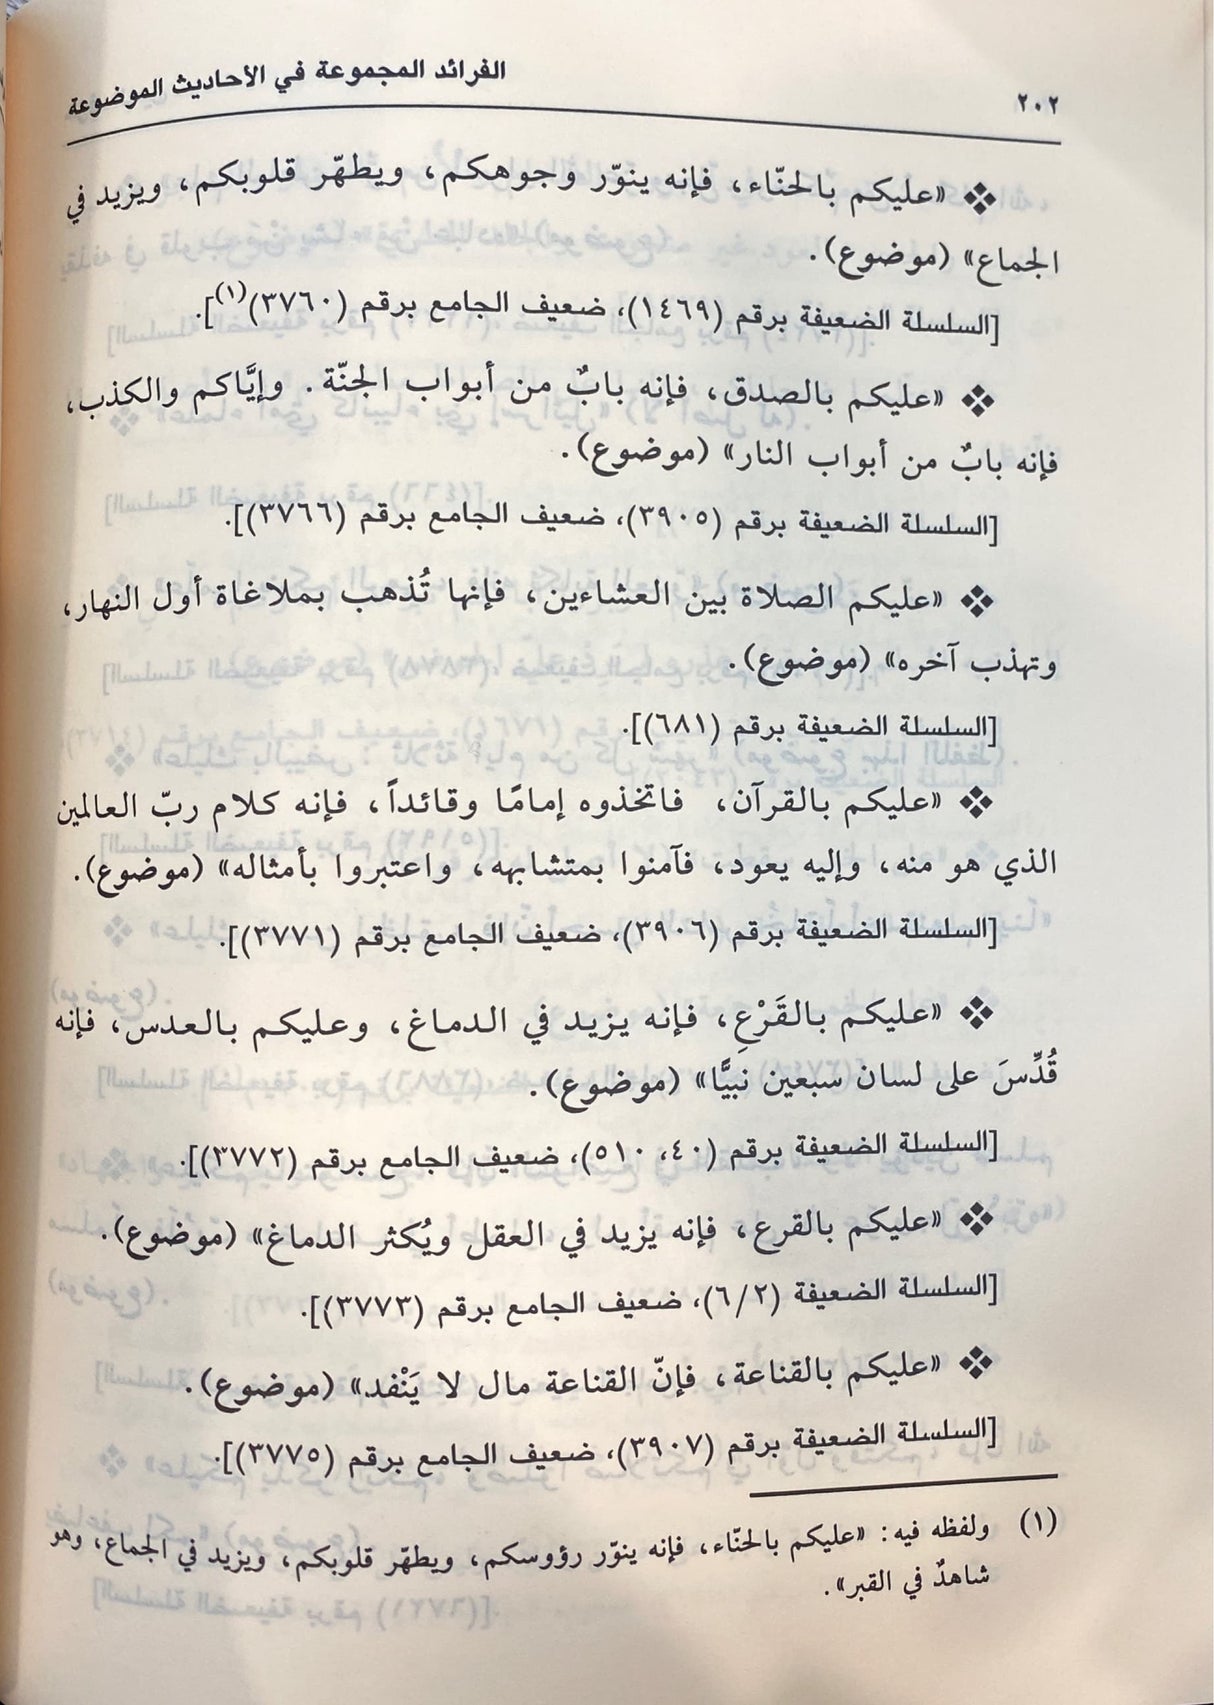 ٢٠٢
الفرائد المجموعة في الأحاديث الموضوعة
❖ «عليكم بالحنّاء، فإنه ينوّر وجوهكم، ويطهّر قلوبكم، ويزيد في
الجماع» (موضوع).
[السلسلة الضعيفة برقم (١٤٦٩)، ضعيف الجامع برقم (٣٧٦٠)(١)].
❖ «عليكم بالصدق، فإنه بابٌ من أبواب الجنّة. وإيَّاكم والكذب،
فإنه بابٌ من أبواب النار» (موضوع).
[السلسلة الضعيفة برقم (٣٩٠٥)، ضعيف الجامع برقم (٣٧٦٦)].
❖ «عليكم الصلاة بين العشاءين، فإنها تُذهب بملاغاة أول النهار،
وتهذب آخره» (موضوع).
[السلسلة الضعيفة برقم (٦٨١)].
❖ «عليكم بالقرآن، فاتخذوه إمامًا وقائداً، فإنه كلام ربّ العالمين
الذي هو منه، وإليه يعود، فآمنوا بمتشابهه، واعتبروا بأمثاله» (موضوع).
[السلسلة الضعيفة برقم (٣٩٠٦)، ضعيف الجامع برقم (٣٧٧١)].
❖ «عليكم بالقَرْعِ، فإنه يزيد في الدماغ، وعليكم بالعدس، فإنه
قُدِّسَ على لسان سبعين نبيًّا» (موضوع).
[السلسلة الضعيفة برقم (٤٠، ٥١٠)، ضعيف الجامع برقم (٣٧٧٢)].
❖ «عليكم بالقرع، فإنه يزيد في العقل ويُكثر الدماغ» (موضوع).
[السلسلة الضعيفة (٦/٢)، ضعيف الجامع برقم (٣٧٧٣)].
❖ «عليكم بالقناعة، فإنّ القناعة مال لا يَنْفد» (موضوع).
[السلسلة الضعيفة برقم (٣٩٠٧)، ضعيف الجامع برقم (٣٧٧٥)].
(١) ولفظه فيه: «عليكم بالحنّاء، فإنه ينوّر رؤوسكم، ويطهّر قلوبكم، ويزيد في الجماع، وهو
شاهدٌ في القبر».